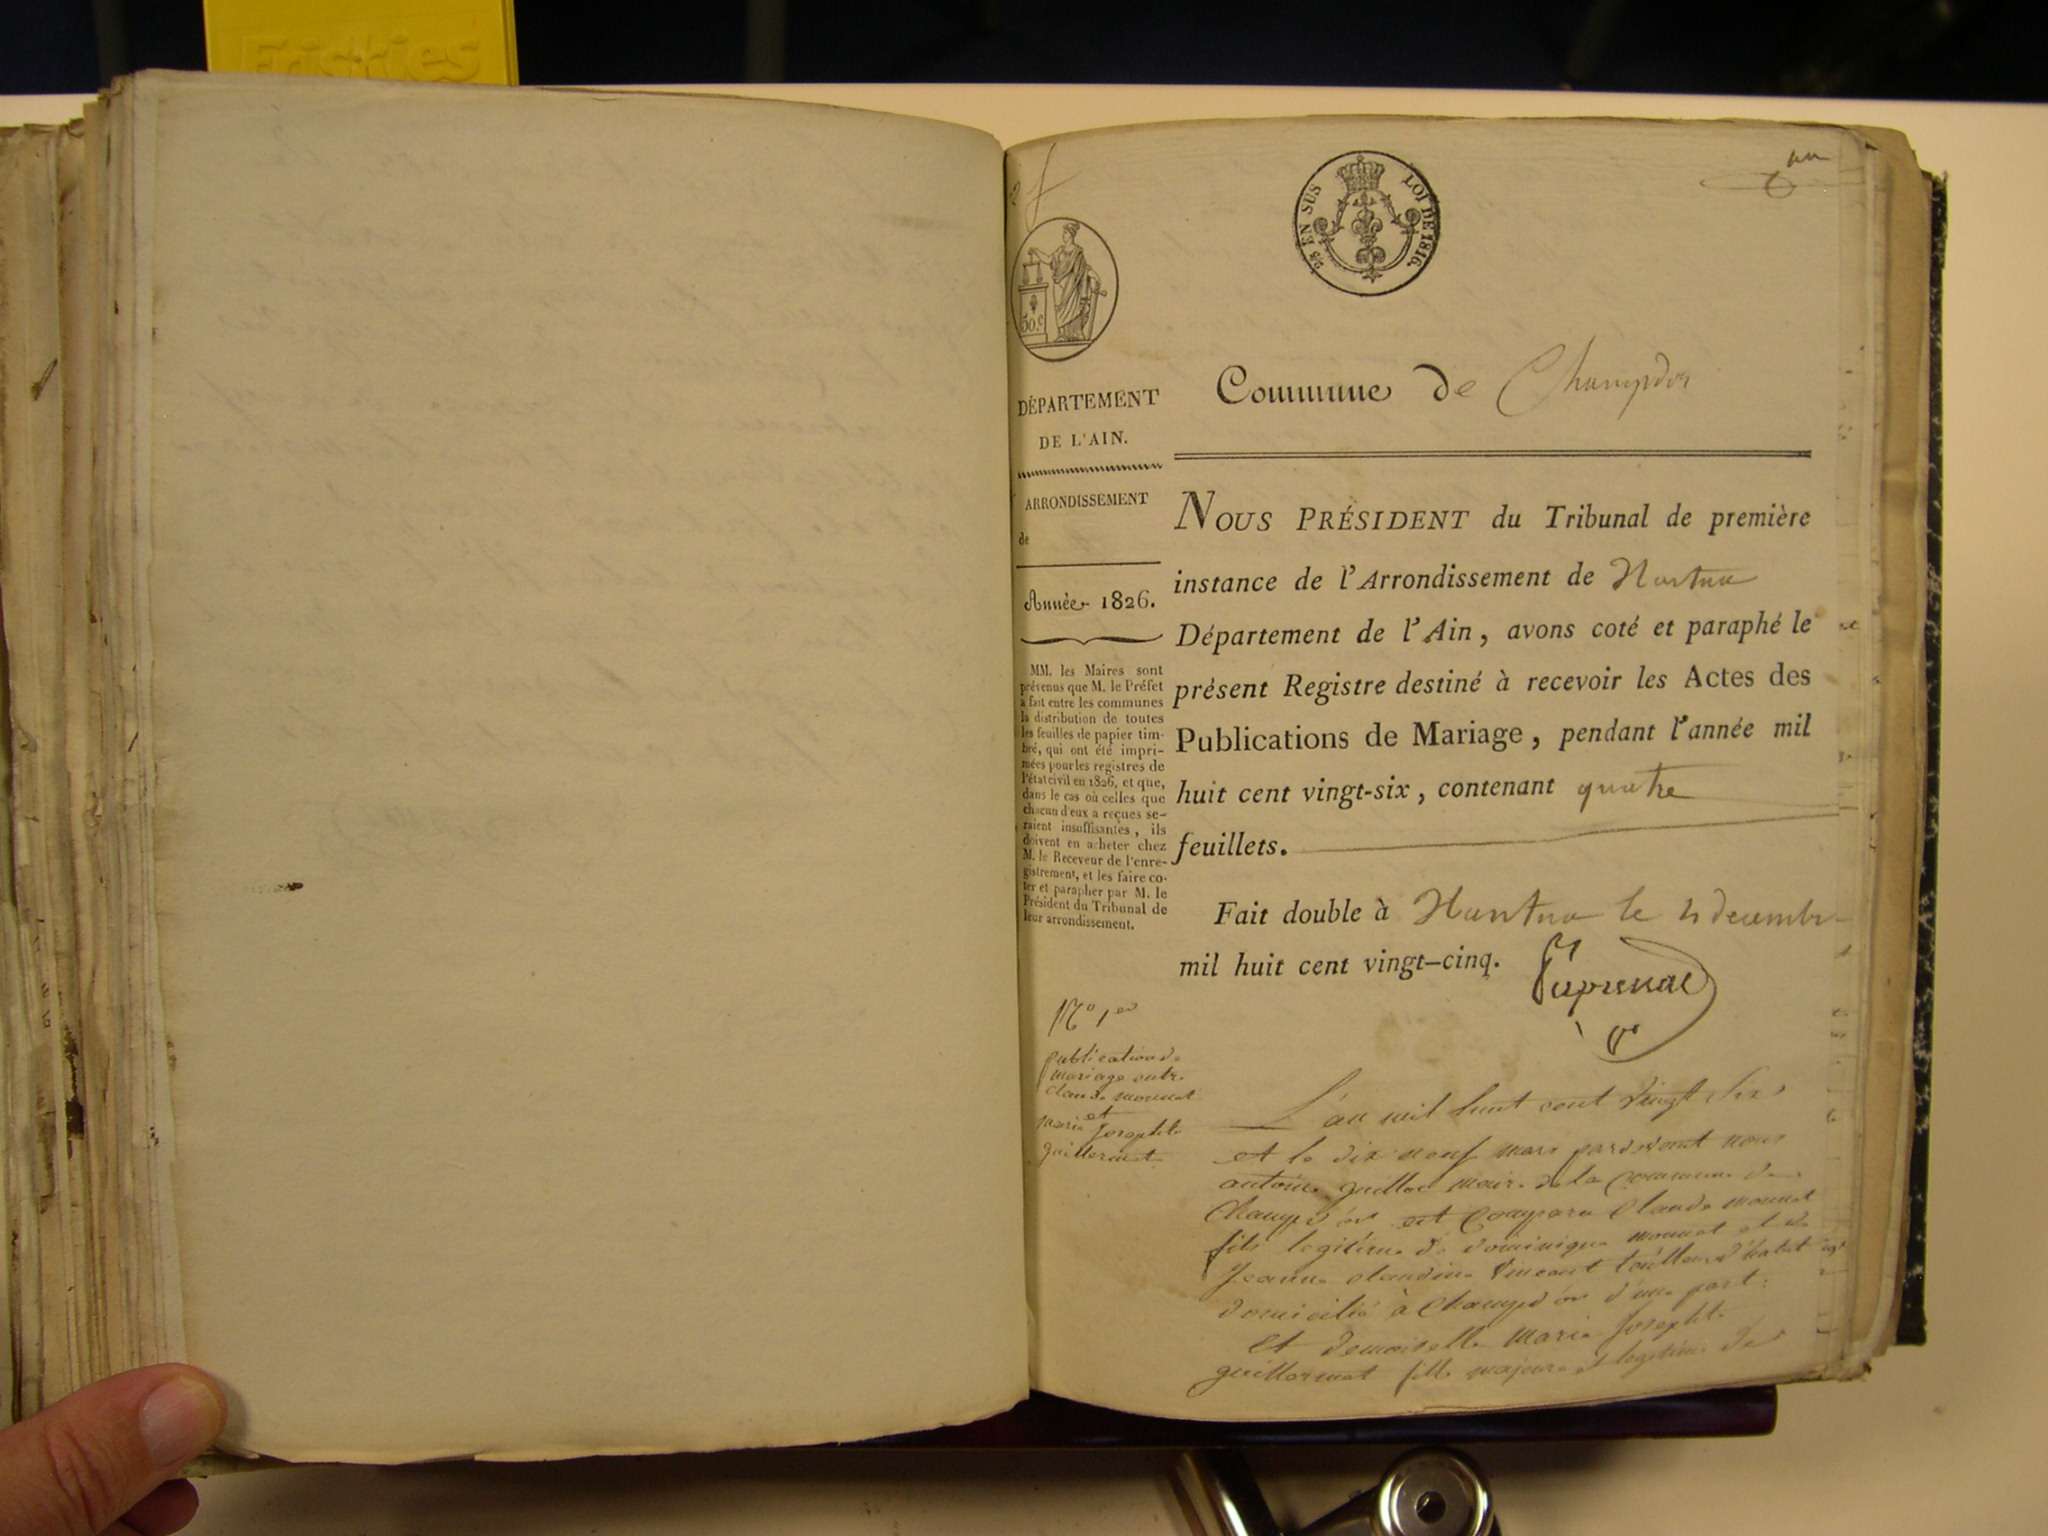 Friskies
un
25 EN SUS LOI DE 1816.
50.c
Commune de Champdor
DÉPARTEMENT
DE L'AIN.
ARRONDISSEMENT
de
Année 1826.
MM. les Maires sont
prévenus que M. le Préfet
a fait entre les communes
la distribution de toutes
les feuilles de papier tim-
bré, qui ont été impri-
mées pour les registres de
l'état civil en 1826, et que,
dans le cas où celles que
chacun d'eux a reçues se-
raient insuffisantes, ils
doivent en acheter chez
M. le Receveur de l'enre-
gistrement, et les faire co-
ter et parapher par M. le
Président du Tribunal de
leur arrondissement.
NOUS PRÉSIDENT du Tribunal de première
instance de l'Arrondissement de Nantua
Département de l'Ain, avons coté et paraphé le
présent Registre destiné à recevoir les Actes des
Publications de Mariage, pendant l'année mil
huit cent vingt-six, contenant quatre
feuillets.
Fait double à Nantua le decembre
mil huit cent vingt-cinq.
No 1er
publication de
mariage entre
Claude monnet
et
marie Josephte
guillermet
L'an mil huit cent vingt Six
et le dix neuf mars pardevant nous
antoine guillot maire de la commune de
Champd'or est comparu Claude monnet
fils legitime de dominique monnet et de
Jeanne claudine Vincent tailleur d'habit
domicilié à Champd'or d'une part
et demoiselle Marie Josephte
guillermet fille majeure et legitime de